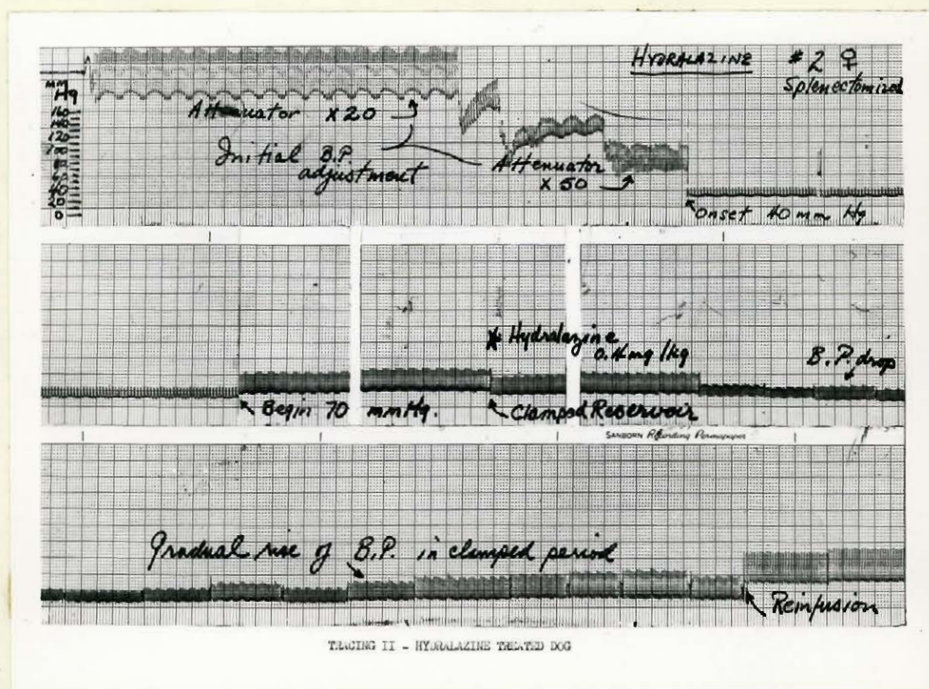 HYDRALAZINE
#2 ♀
Splenectomized
MM
Hg
160
140
120
100
80
60
40
20
0
Attenuator X20
Initial B.P.
adjustment
Attenuator
X 50
Onset 40 mm Hg
* Hydralazine
0.4mg/kg
B.P. drop
Begin 70 mmHg.
Clamped Reservoir
SANBORN Recording Permapaper
Gradual rise of B.P. in clamped period
Reinfusion
TRACING II - HYDRALAZINE TREATED DOG